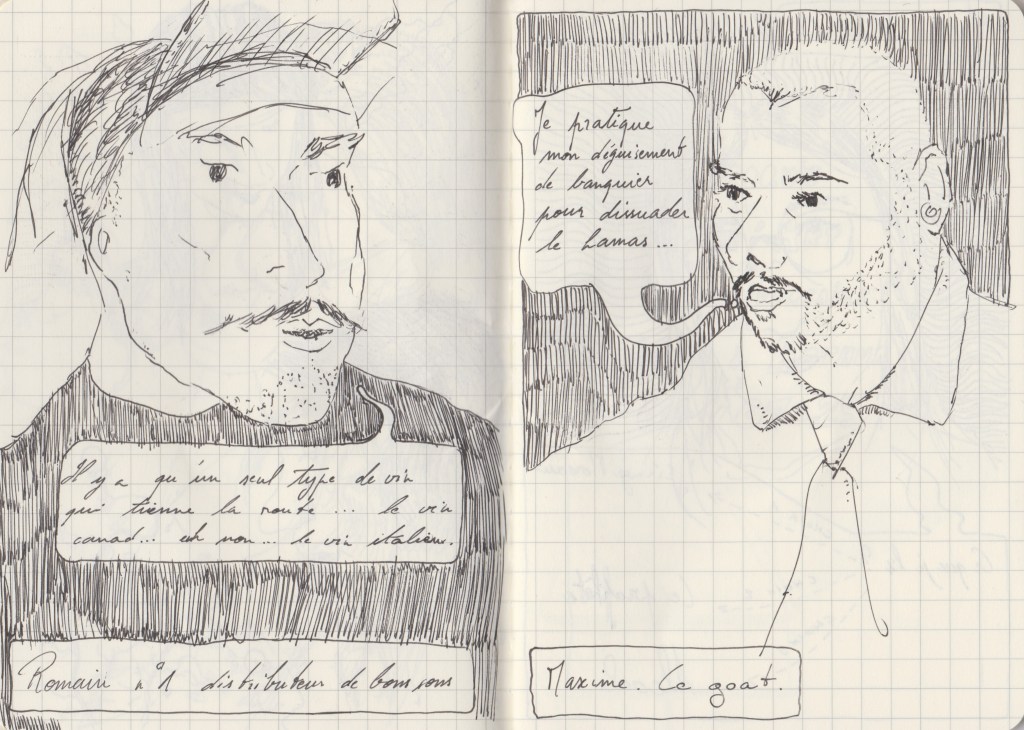 Il y a qu'un seul type de vin
qui tienne la route ... le vin
canad... euh non ... le vin italien.
Romain n°1 distributeur de bons sons
Je pratique
mon déguisement
de banquier
pour dissuader
le hamas ...
Maxime. Le goat.